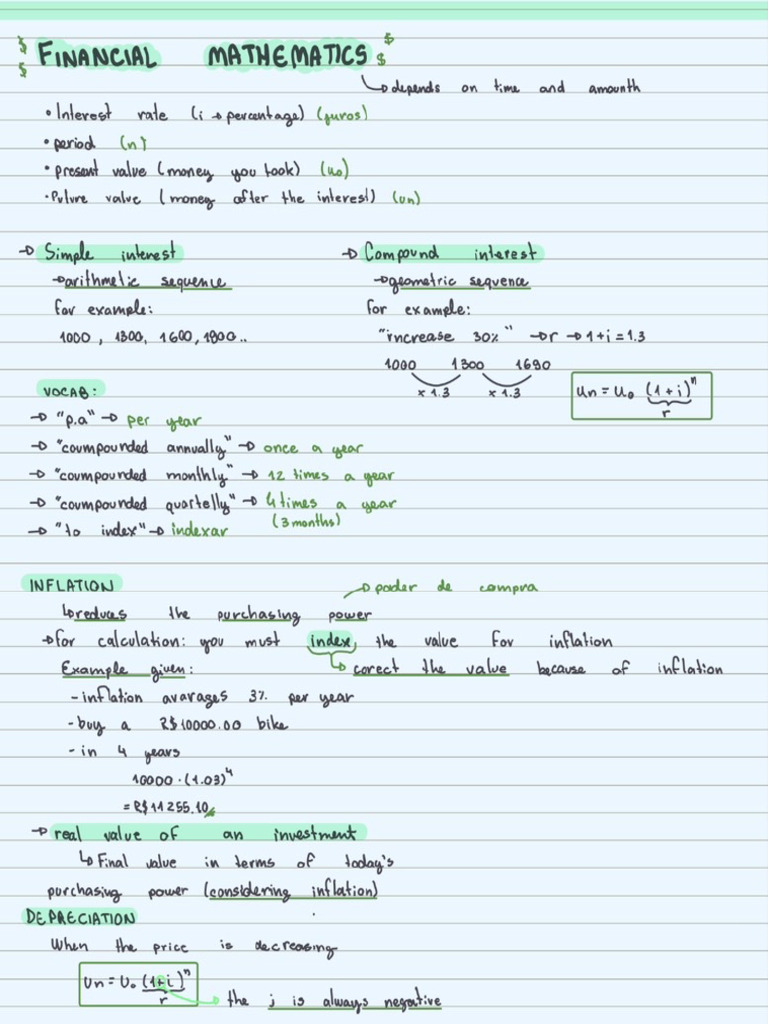 $ FINANCIAL MATHEMATICS $
$ $
↳ depends on time and amounth
• Interest rate (i → percentage) (juros)
• period (n)
• present value (money you took) (u₀)
• Future value (money after the interest) (un)
→ Simple interest
→ arithmetic sequence
for example:
1000, 1300, 1600, 1900..
→ Compound interest
→ geometric sequence
for example:
"increase 30%" → r → 1+i = 1.3
1000 1300 1690
x 1.3 x 1.3
Un = U₀ (1+i)ⁿ
r
VOCAB:
→ "p.a" → per year
→ "coumpounded annually" → once a year
→ "coumpounded monthly" → 12 times a year
→ "coumpounded quartelly" → 4 times a year
(3 months)
→ "to index" → indexar
INFLATION
→ poder de compra
↳ reduces the purchasing power
→ for calculation: you must index the value for inflation
Example given: ↳ corect the value because of inflation
- inflation avarages 3% per year
- buy a R$10000.00 bike
- in 4 years
10000 · (1.03)⁴
= R$11255.10
→ real value of an investment
↳ Final value in terms of today's
purchasing power (considering inflation)
DEPRECIATION
When the price is decreasing
Un = U₀ (1+i)ⁿ
r → the i is always negative